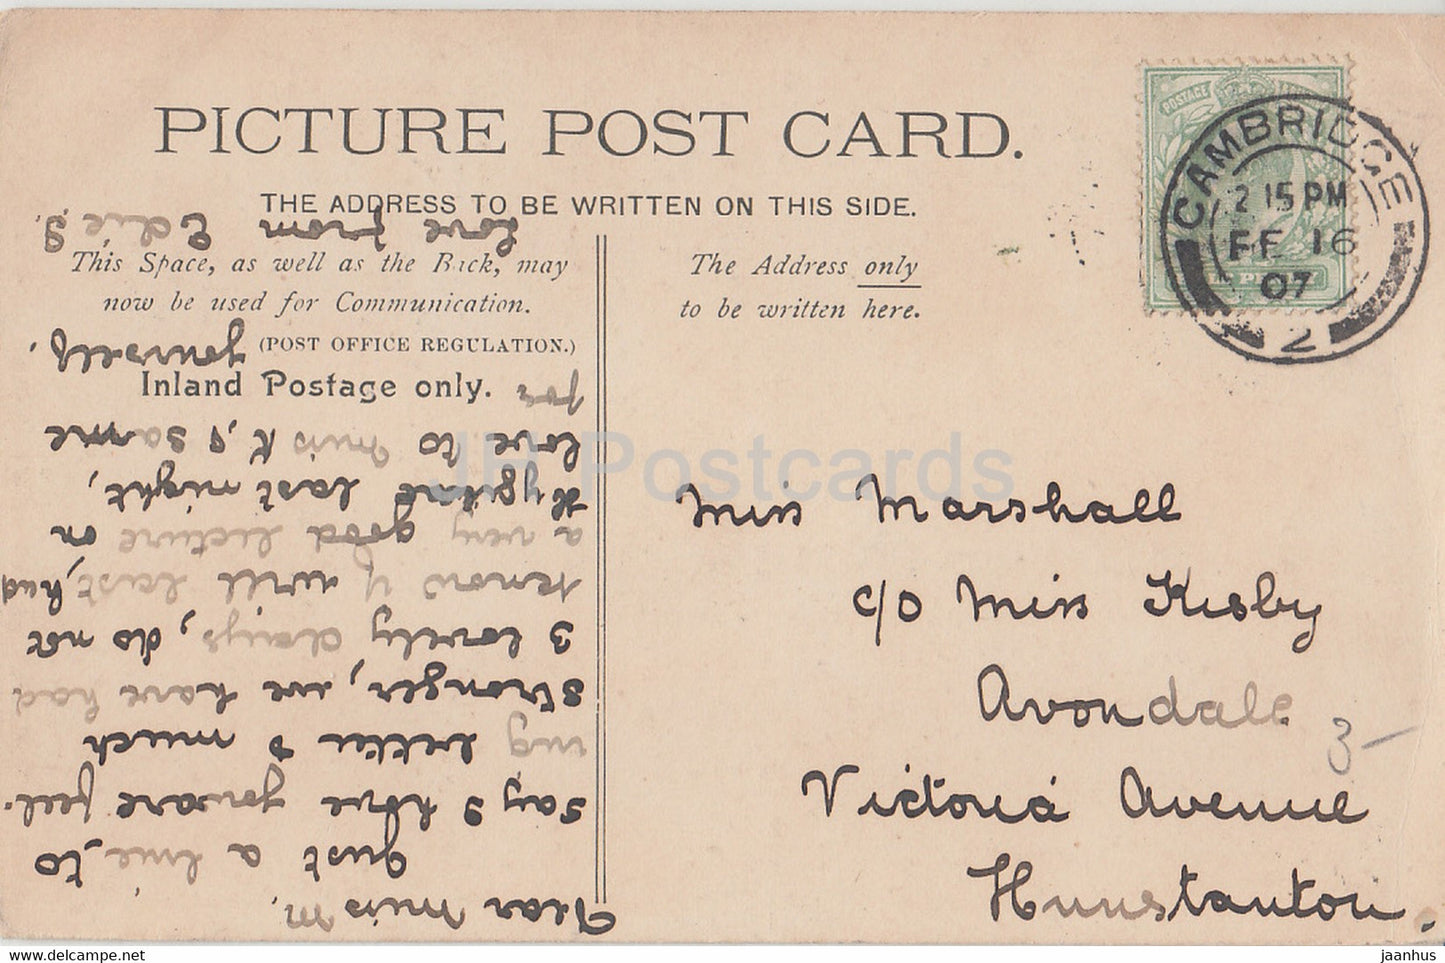 PICTURE POST CARD.
THE ADDRESS TO BE WRITTEN ON THIS SIDE.
This Space, as well as the Back, may
now be used for Communication.
(POST OFFICE REGULATION.)
Inland Postage only.
The Address only
to be written here.
POSTAGE
CAMBRIDGE
2 15 PM
FE 16
07
2
Miss Marshall
c/o Miss Kisby
Avondale
Victoria Avenue
Hunstanton.
3-
Dear Miss M.
Just a line, to
say I hope you are feel-
ing better & much
stronger, we have had
3 lovely days, do not
know if will last, had
a very good lecture on
Hygiene last night,
love to Miss K, & same
for
yourself.
Love from Edie S.
JH Postcards
www.delcampe.net
jaanhus